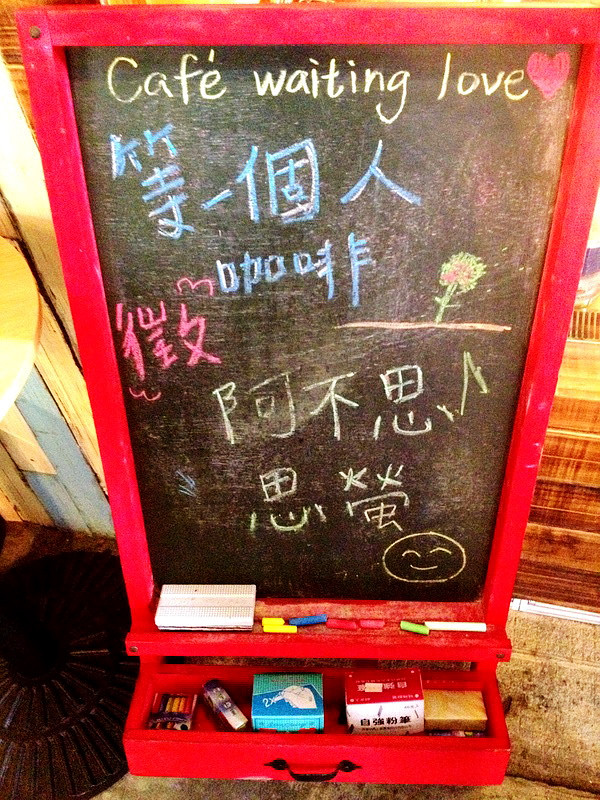 Café waiting love
等一個人
咖啡
徵
阿不思
思螢
自強粉筆